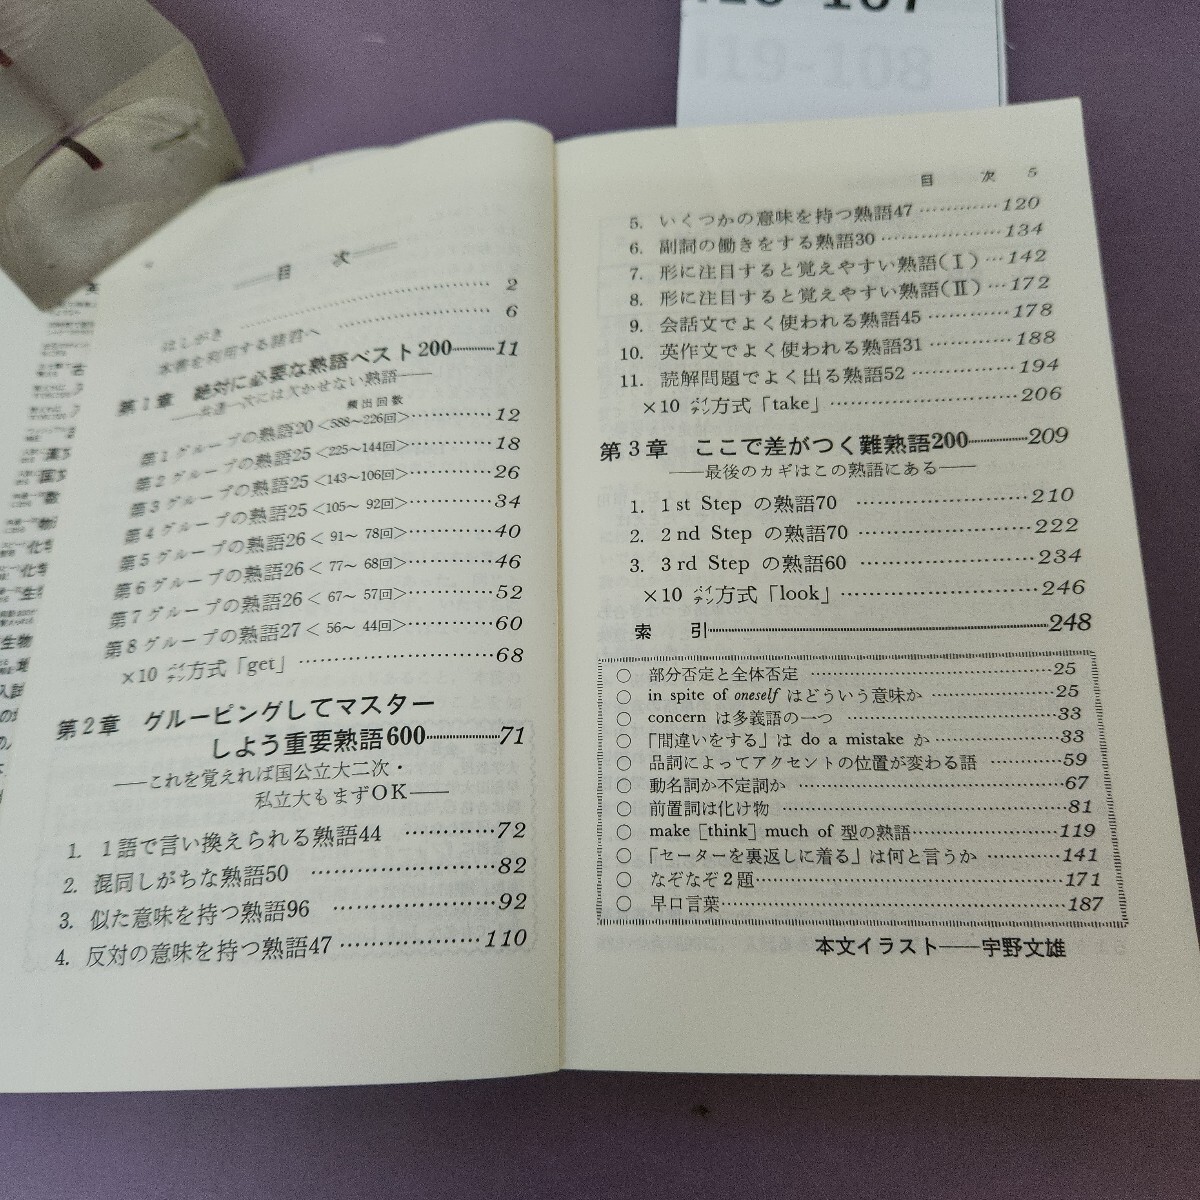 119-108
目次
はしがき……2
本書を利用する諸君へ……6
第1章 絶対に必要な熟語ベスト200……11
──共通一次には欠かせない熟語──
頻出回数
第1グループの熟語20<588～226回>……12
第2グループの熟語25<225～144回>……18
第3グループの熟語25<143～106回>……26
第4グループの熟語25<105～ 92回>……34
第5グループの熟語26< 91～ 78回>……40
第6グループの熟語26< 77～ 68回>……46
第7グループの熟語26< 67～ 57回>……52
第8グループの熟語27< 56～ 44回>……60
×10 バイテン方式「get」……68
第2章 グルーピングしてマスター
しよう重要熟語600……71
──これを覚えれば国公立大二次・
私立大もまずOK──
1. 1語で言い換えられる熟語44……72
2. 混同しがちな熟語50……82
3. 似た意味を持つ熟語96……92
4. 反対の意味を持つ熟語47……110
目次 5
5. いくつかの意味を持つ熟語47……120
6. 副詞の働きをする熟語30……134
7. 形に注目すると覚えやすい熟語(Ⅰ)…142
8. 形に注目すると覚えやすい熟語(Ⅱ)…172
9. 会話文でよく使われる熟語45……178
10. 英作文でよく使われる熟語31……188
11. 読解問題でよく出る熟語52……194
×10 バイテン方式「take」……206
第3章 ここで差がつく難熟語200……209
──最後のカギはこの熟語にある──
1. 1st Step の熟語70……210
2. 2nd Step の熟語70……222
3. 3rd Step の熟語60……234
×10 バイテン方式「look」……246
索引……248
○ 部分否定と全体否定……25
○ in spite of oneself はどういう意味か……25
○ concern は多義語の一つ……33
○ 「間違いをする」は do a mistake か……33
○ 品詞によってアクセントの位置が変わる語……59
○ 動名詞か不定詞か……67
○ 前置詞は化け物……81
○ make [think] much of 型の熟語……119
○ 「セーターを裏返しに着る」は何と言うか……141
○ なぞなぞ2題……171
○ 早口言葉……187
本文イラスト──宇野文雄